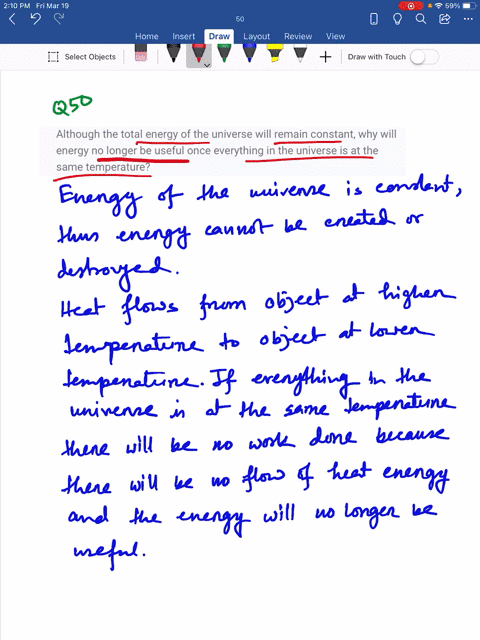 2:10 PM Fri Mar 19
59%
50
Home Insert Draw Layout Review View
Select Objects
Draw with Touch
Q50
Although the total energy of the universe will remain constant, why will
energy no longer be useful once everything in the universe is at the
same temperature?
Energy of the universe is constant,
thus energy cannot be created or
destroyed.
Heat flows from object at higher
temperature to object at lower
temperature. If everything in the
universe is at the same temperature
there will be no work done because
there will be no flow of heat energy
and the energy will no longer be
useful.